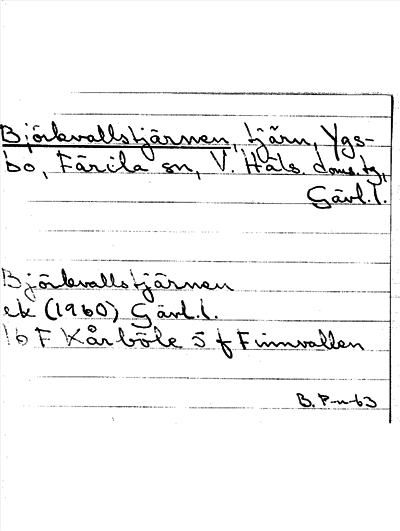 Björkvallstjärnen, tjärn, Ygs-
bo, Färila sn, V. Häls. doms.tg,
Gävl.l.
Björkvallstjärnen
ek (1960) Gävl.l.
16 F Kårböle 5 f Finnvallen
B. P-n-63